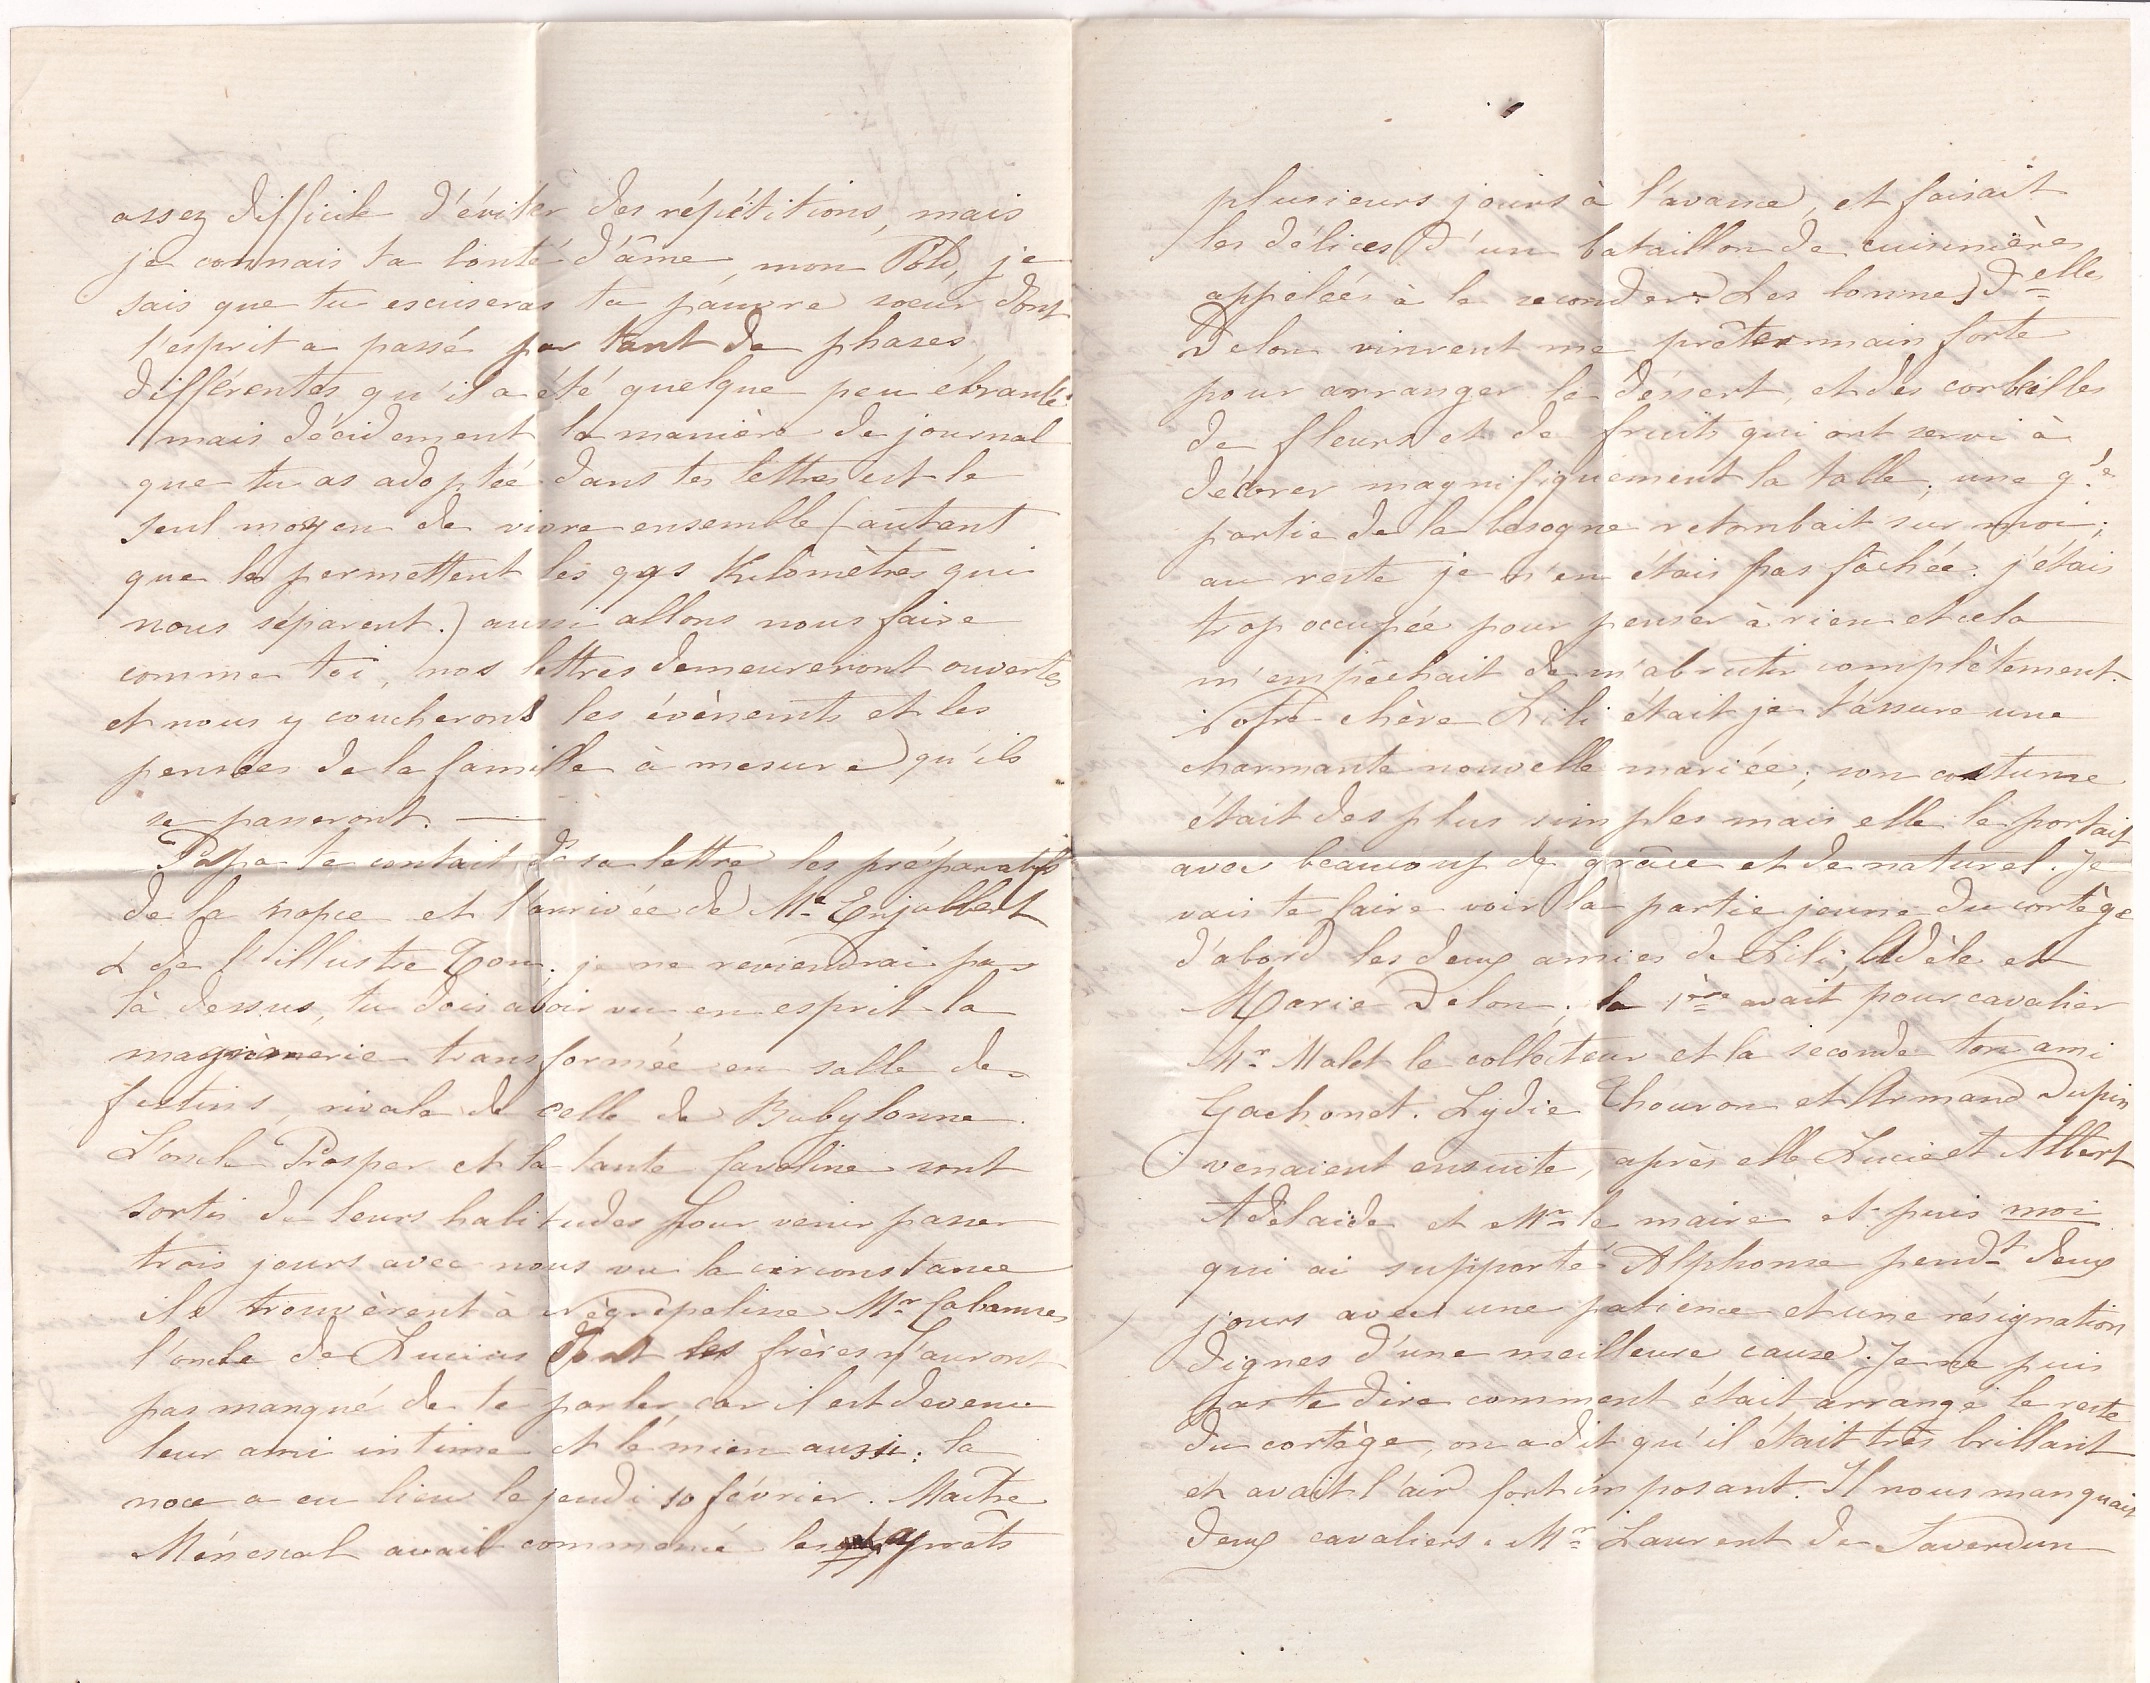 assez difficile d'éviter des répétitions, mais
je connais ta bonté d'âme, mon Polo, je
sais que tu escuseras ta pauvre soeur dont
l'esprit a passé par tant de phases
différentes qu'il a été quelque peu ébranlé.
mais décidement la manière de journal
que tu as adoptée dans tes lettres est le
seul moyen de vivre ensemble (autant
que le permettent les qqs Kilomètres qui
nous séparent.) aussi allons nous faire
comme toi, nos lettres demeureront ouvertes
et nous y coucherons les évènemts et les
pensées de la famille à mesure qu'ils
se passeront. —
Papa te contait ds sa lettre les préparatifs
de la nopce et l'arrivée de Me Enjalbert
& de l'illustre Tom. je ne reviendrai pas
là dessus, tu dois avoir vu en esprit la
magnanerie transformée en salle de
festins, rivale de celle de Babylonne.
L'oncle Prosper et la tante Caroline sont
sortis de leurs habitudes pour venir passer
trois jours avec nous vu la circonstance
ils trouvèrent à Nègrepelisse Mr Cabanes
l'oncle de Lucius dont les frères n'auront
pas manqué de te parler, car il est devenu
leur ami intime et le mien aussi; la
noce a eu lieu le jeudi 10 février. Maître
Ménescal avait commencé les apprêts
plusieurs jours à l'avance, et faisait
les délices d'un bataillon de cuisinières
appelées à le seconder. Les bonnes Delle
Delon vinrent me prêter main forte
pour arranger le dessert, et des corbeilles
de fleurs et de fruits qui ont servi à
décorer magnifiquement la table; une gde
partie de la besogne retombait sur moi;
au reste je n'en étais pas fâchée. j'étais
trop occupée pour penser à rien et cela
m'empêchait de m'abrutir complètement.
Notre chère Lili était je t'assure une
charmante nouvelle mariée; son costume
était des plus simples mais elle le portait
avec beaucoup de grâce et de naturel. Je
vais te faire voir la partie jeune du cortège
d'abord les deux amies de Lili, Adèle et
Marie Delon; la 1ère avait pour cavalier
Mr Malet le collecteur et la seconde ton ami
Gachonet. Lydie Thouron et Armand Dupin
venaient ensuite, après elle Lucie et Albert
Adelaïde et Mr le maire et puis moi
qui ai supporté Alphonse pendt deux
jours avec une patience et une résignation
dignes d'une meilleure cause. Je ne puis
pas te dire comment était arrangé le reste
du cortège, on a dit qu'il était très brillant
et avait l'air fort imposant. Il nous manquait
deux cavaliers. Mr Laurent de Saverdun